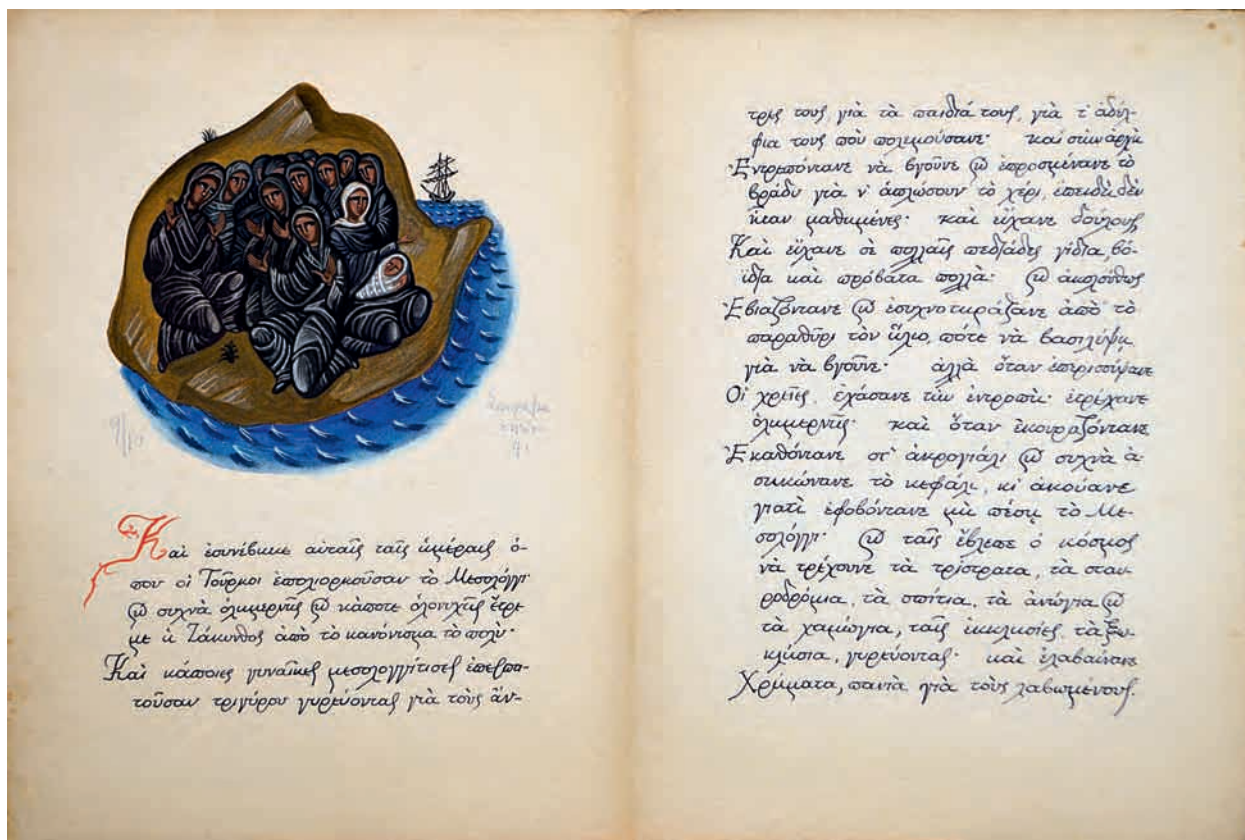 Καὶ ἐσυνέβηκε αὐταῖς ταῖς ἡμέραις ὁ-
που οἱ Τοῦρκοι ἐπολιορκοῦσαν τὸ Μεσολόγγι·
ϗ συχνὰ ὁλημερνὶς ϗ κάποτε ὁλονυχτὶς ἔτρε
με ἡ Ζάκυνθος ἀπὸ τὸ κανόνισμα τὸ πολύ·
Καὶ κάποιες γυναῖκες μεσολογγίτισες ἐπερπα-
τοῦσαν τριγύρου γυρεύοντας γιὰ τοὺς ἄν-
τρες τους, γιὰ τὰ παιδιά τους, γιὰ τ' ἀδέλ-
φια τους ποὺ πολεμούσανε· καὶ στὴν ἀρχὴ
Ἐντρεπόντανε νὰ βγοῦνε ϗ ἐπροσμένανε τὸ
βράδυ γιὰ ν' ἁπλώσουν τὸ χέρι, ἐπειδὴ δὲν
ἦσαν μαθημένες· καὶ εἴχανε δούλους
Καὶ εἴχανε σὲ πολλαῖς πεδιάδες γίδια, βό-
ϊδια καὶ πρόβατα πολλὰ· ϗ ἀκολούθως
Ἐβιαζόντανε ϗ ἐσυχνοτηράζανε ἀπὸ τὸ
παραθύρι τὸν ἥλιο, πότε νὰ βασιλέψη
γιὰ νὰ βγοῦνε· ἀλλὰ ὅταν ἐπερισσέψανε
Οἱ χρεῖες, ἐχάσανε τὴν ἐντροπὴ· ἐτρέχανε
ὁλημερνὶς· καὶ ὅταν ἐκουραζόντανε
Ἐκαθόντανε στ' ἀκρογιάλι ϗ συχνὰ ἀ-
σηκώνανε τὸ κεφάλι, κι ἀκούανε
γιατὶ ἐφοβόντανε μὴ πέση τὸ Με-
σολόγγι· ϗ ταῖς ἔβλεπε ὁ κόσμος
νὰ τρέχουνε τὰ τρίστρατα, τὰ σταυ-
ροδρόμια, τὰ σπίτια, τὰ ἀνώγια ϗ
τὰ χαμώγια, ταῖς ἐκκλησίες, τὰ ξω-
κλήσια, γυρεύοντας· καὶ ἐλαβαίνανε
Χρήματα, πανιὰ γιὰ τοὺς λαβωμένους.